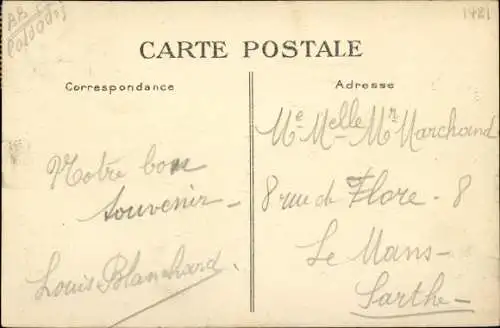 1421
CARTE POSTALE
Correspondance
Notre bon
souvenir -
Louis Blanchard.
Adresse
Me Melle Mr Marchand
8 rue de Flore - 8
Le Mans -
Sarthe -